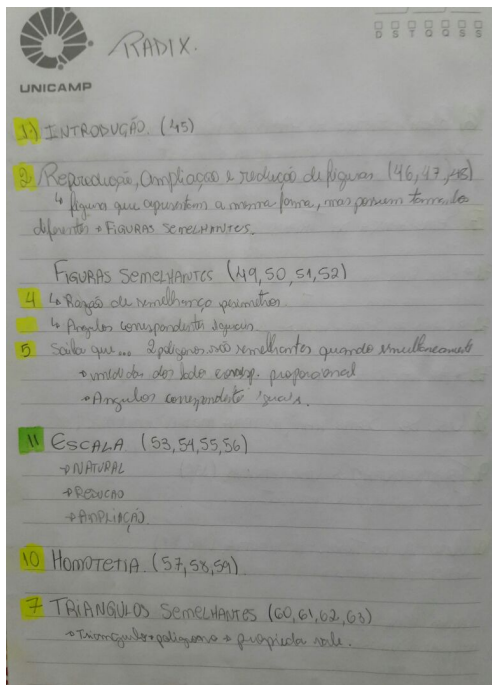 RADIX.
D S T Q Q S S
UNICAMP
1.) INTRODUÇÃO. (45)
2 Reprodução, Ampliação e redução de figuras (46, 47, 48)
↳ figura que apresentam a mesma forma, mas possuem tamanhos
diferentes → FIGURAS SEMELHANTES.
FIGURAS SEMELHANTES (49, 50, 51, 52)
4 ↳ Razão de semelhança perímetros.
↳ Angulos correspondentes iguais
5 Saiba que... 2 polígonos são semelhantes quando simultaneamente
→ medidas dos lado corresp. proporcional
→ Angulos correspondente iguais.
11 ESCALA (53, 54, 55, 56)
→ NATURAL
→ REDUCAO
→ AMPLIAÇÃO.
10 HOMOTETIA. (57, 58, 59)
7 TRIANGULOS SEMELHANTES (60, 61, 62, 63)
→ Triangulo → polígono → propieda vale.